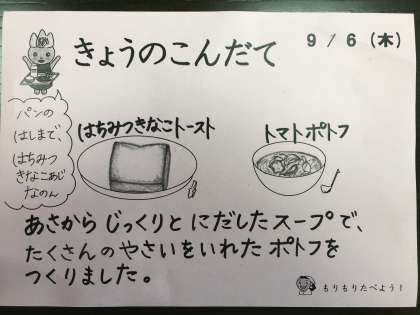 きょうのこんだて
9 / 6 (木)
パンの
はしまで、
はちみつ
きなこあじ
なのん
はちみつきなこトースト
トマトポトフ
あさから じっくりと にだしたスープで、
たくさんのやさいをいれた ポトフを
つくりました。
もりもりたべよう!